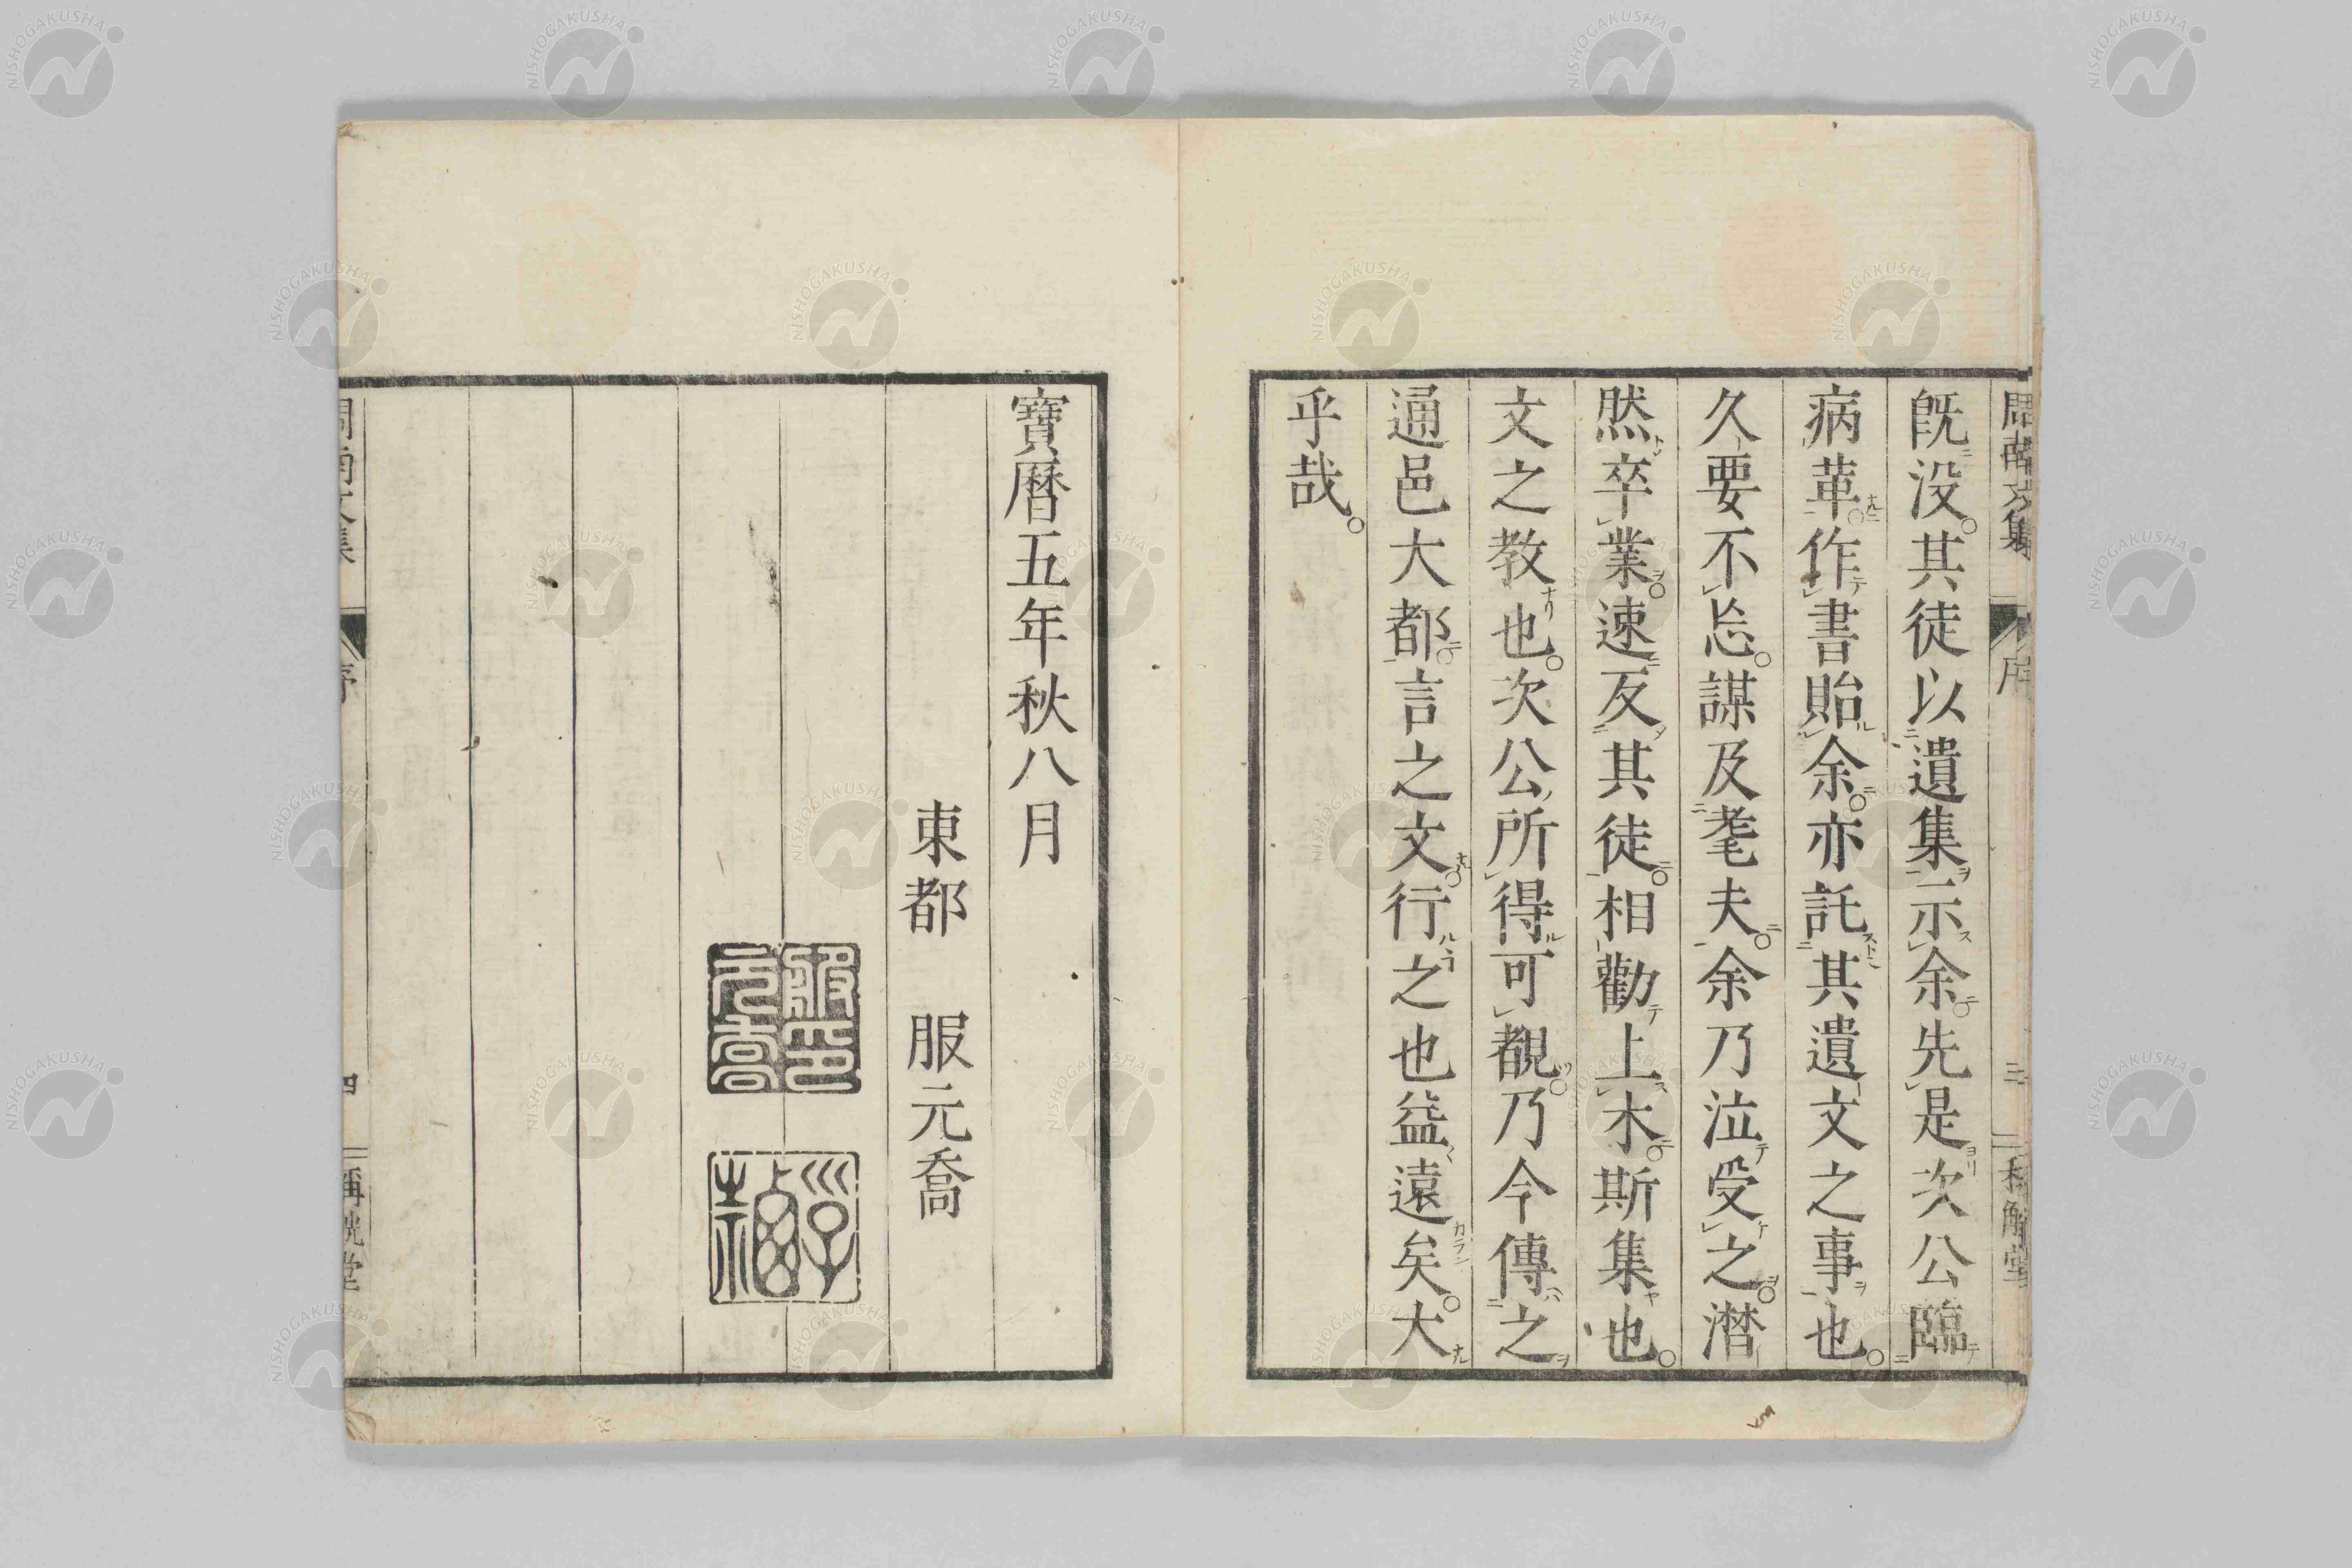 既没其徒以遺集示余先是次公臨
病革作書貽余亦託其遺文之事也
久要不忘謀及耄夫余乃泣受之潸
然卒業速反其徒相勸上木斯集也
文之教也次公所得可覩乃今傳之
通邑大都言之文行之也益遠矣大
乎哉
寶曆五年秋八月
東都 服元喬